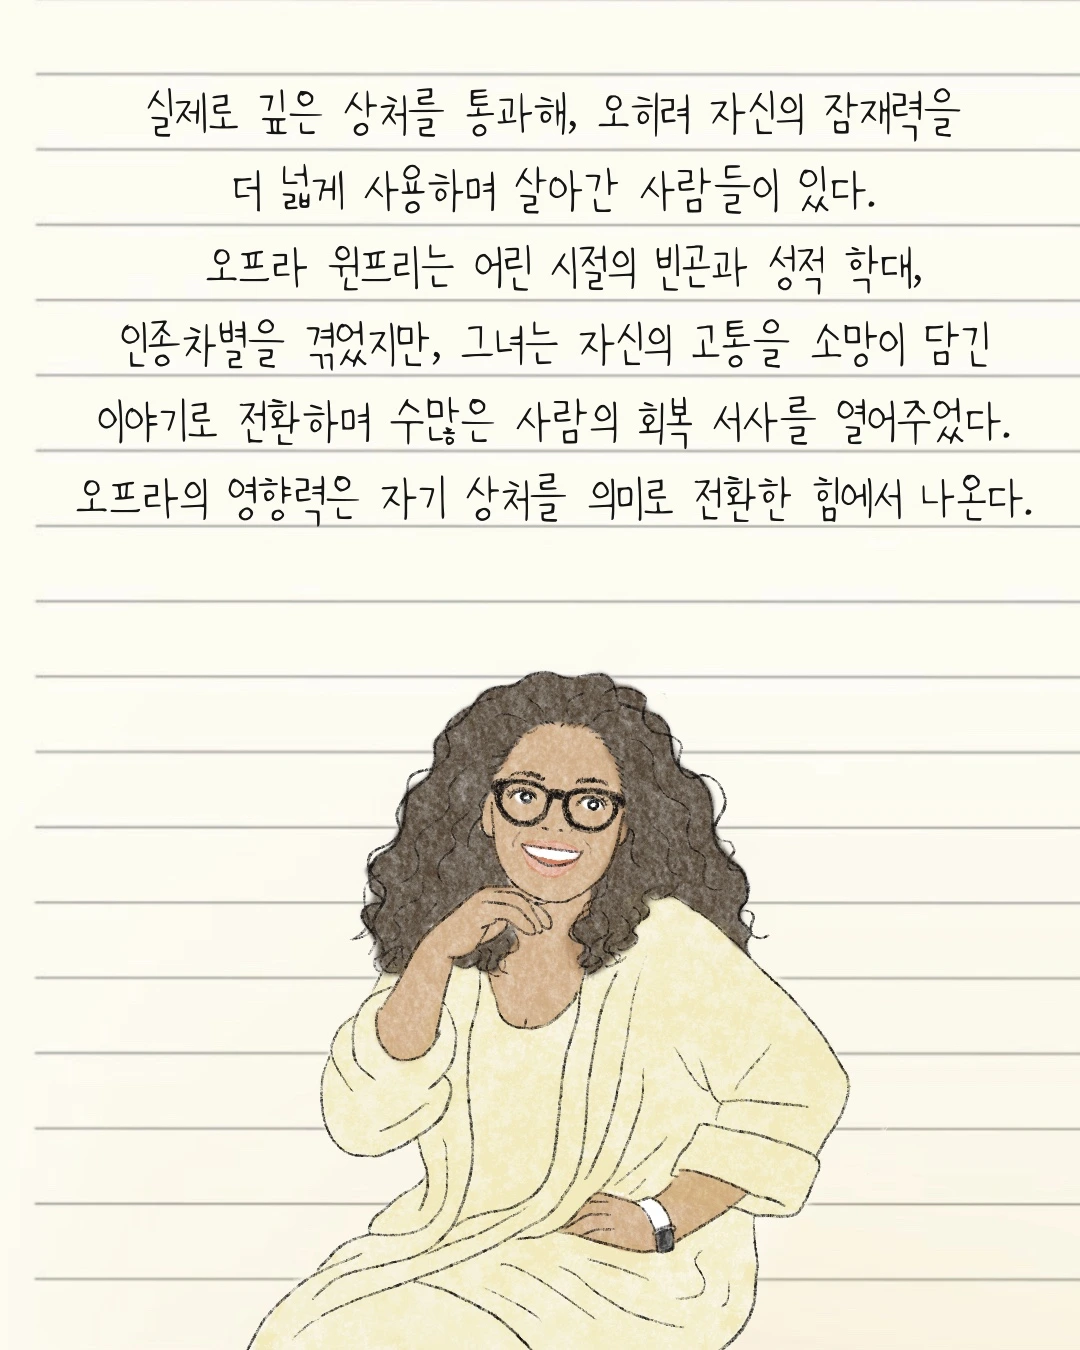 실제로 깊은 상처를 통과해, 오히려 자신의 잠재력을
더 넓게 사용하며 살아간 사람들이 있다.
오프라 윈프리는 어린 시절의 빈곤과 성적 학대,
인종차별을 겪었지만, 그녀는 자신의 고통을 소망이 담긴
이야기로 전환하며 수많은 사람의 회복 서사를 열어주었다.
오프라의 영향력은 자기 상처를 의미로 전환한 힘에서 나온다.